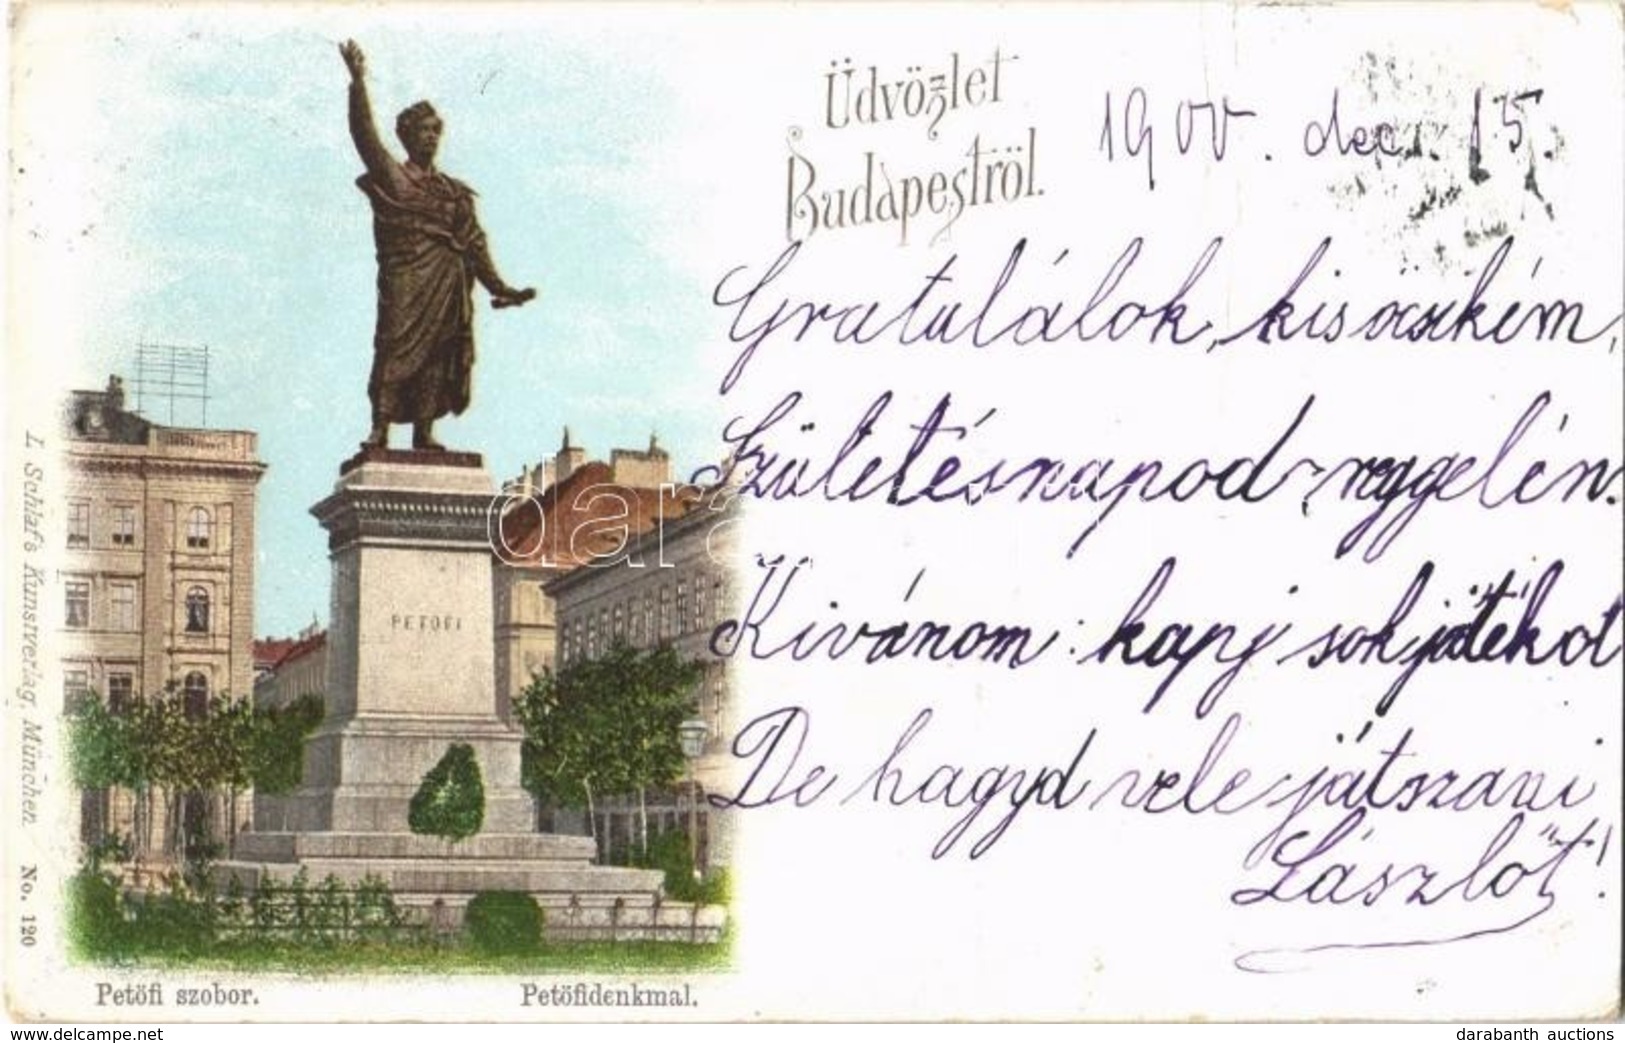 Üdvözlet
Budapeströl.
1900. dec. 15
Gratulálok, kis öcsikém,
Születésnapod reggelén.
Kivánom: kapj sok játékot
De hagyd vele játszani
Lászlót!
PETŐFI
L Schlafs Kunstverlag, München. No. 120
Petöfi szobor. Petöfidenkmal.
www.delcampe.net darabanth auctions